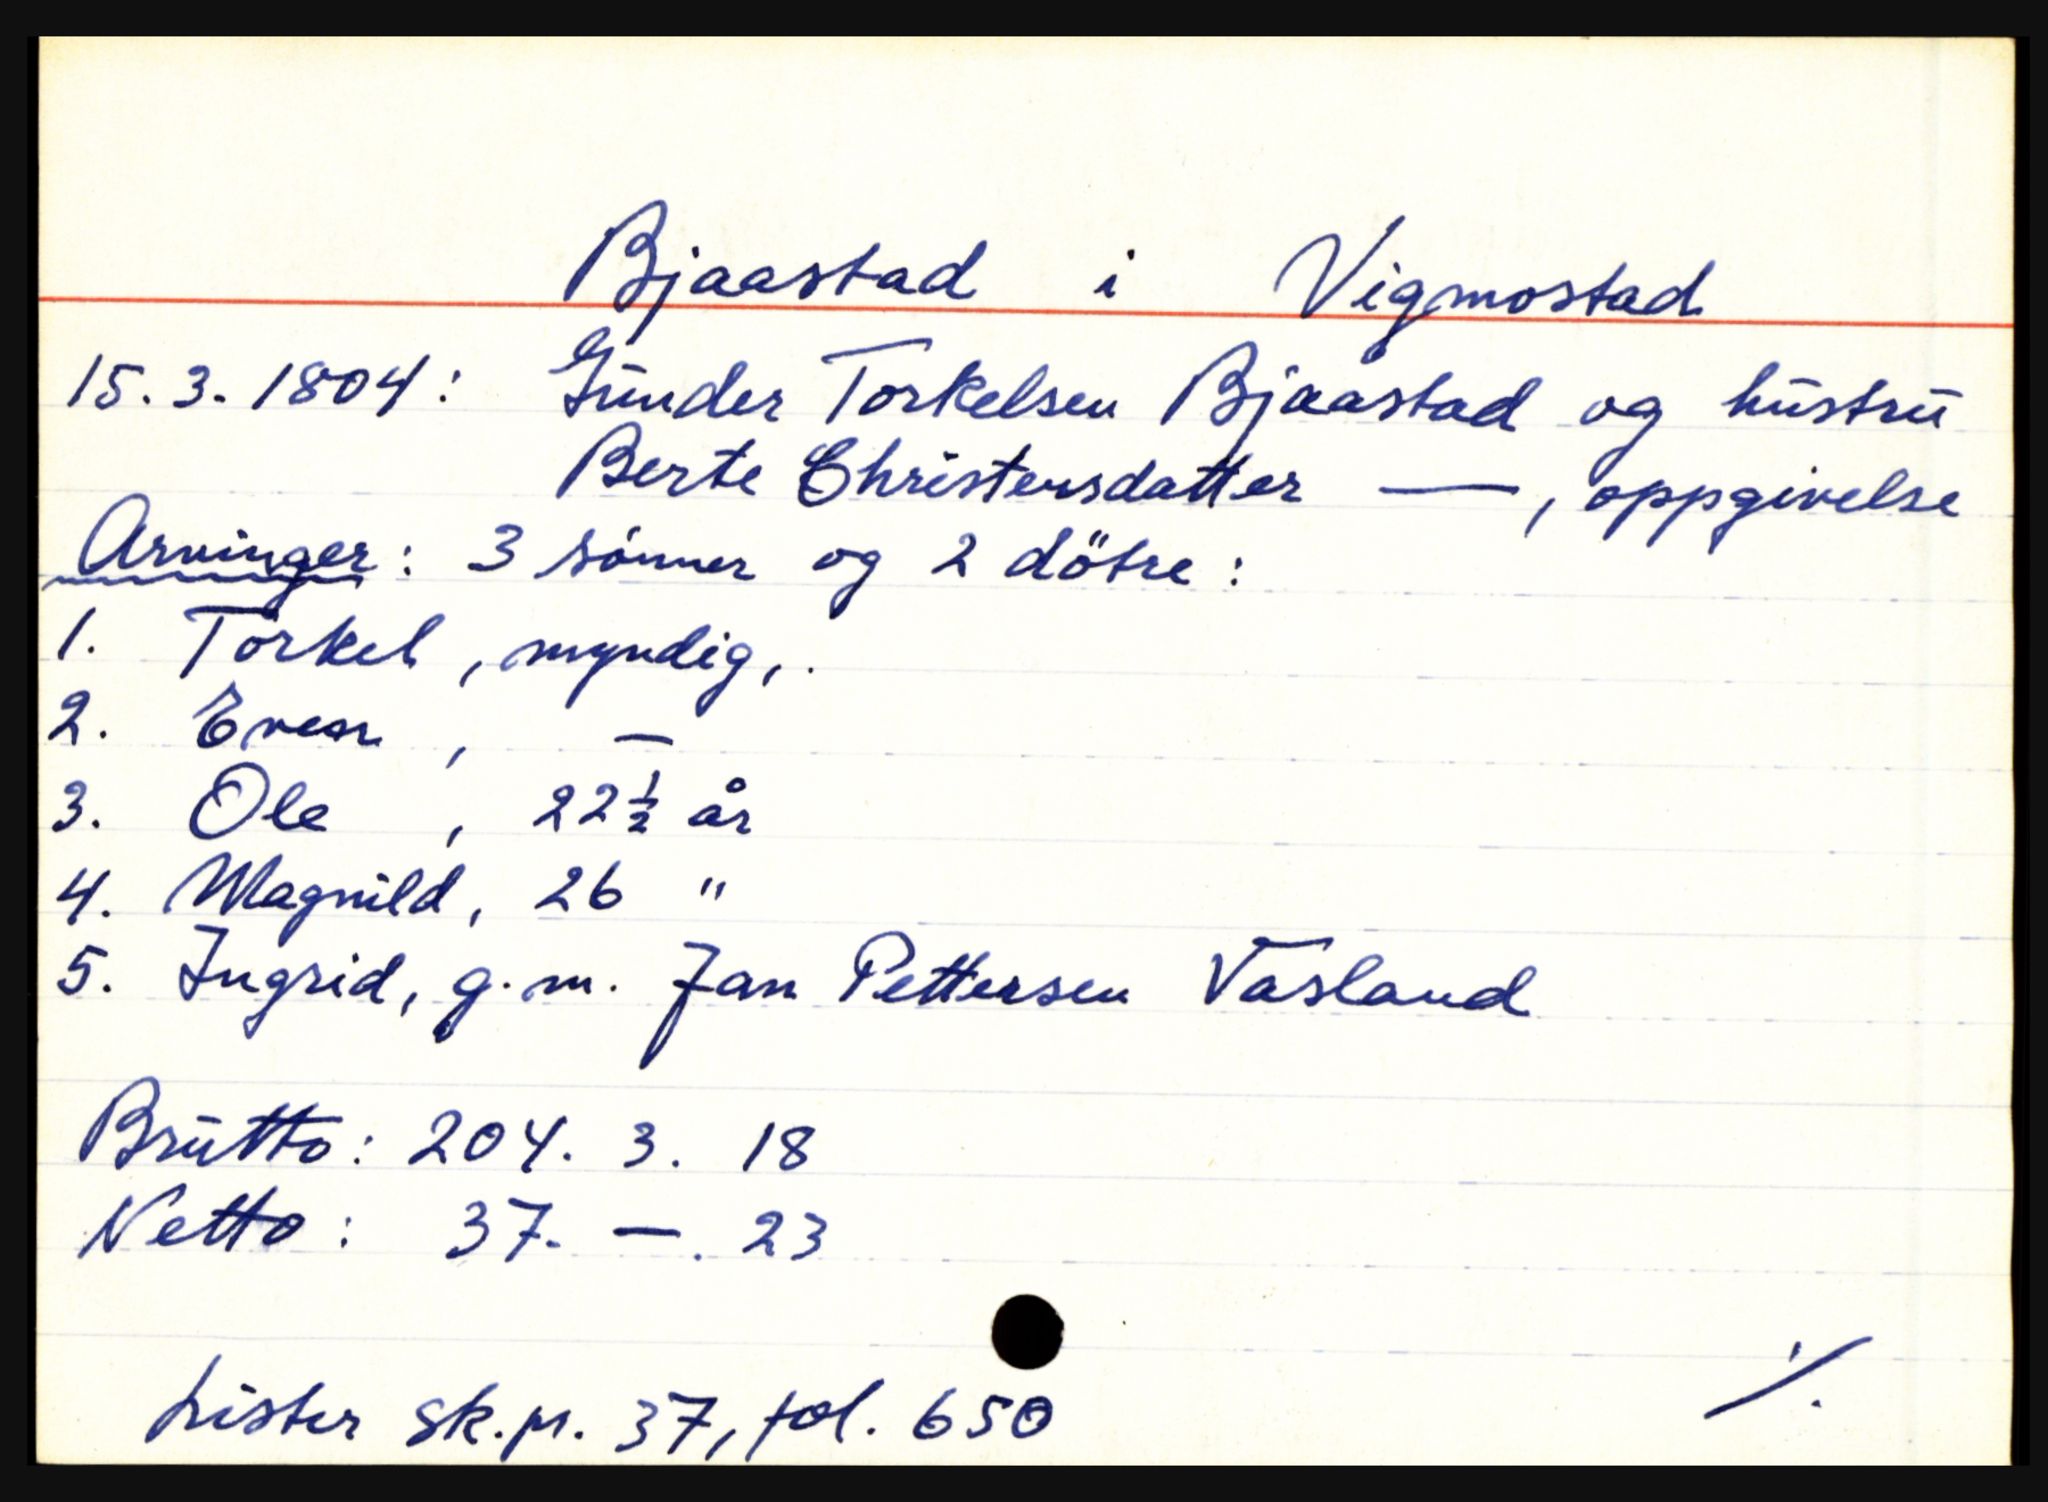 Bjaastad i Vigmostad
15.3.1804: Gunder Torkelsen Bjaastad og hustru
Berte Christensdatter —, oppgivelse
Arvinger: 3 sønner og 2 dötre:
1. Torkel, myndig,.
2. Even, —
3. Ole, 22½ år
4. Magnild, 26 "
5. Ingrid, g.m. Jan Pettersen Vasland
Brutto: 204. 3. 18
Netto: 37. —. 23
Lister sk.pr. 37, fol. 650
./.